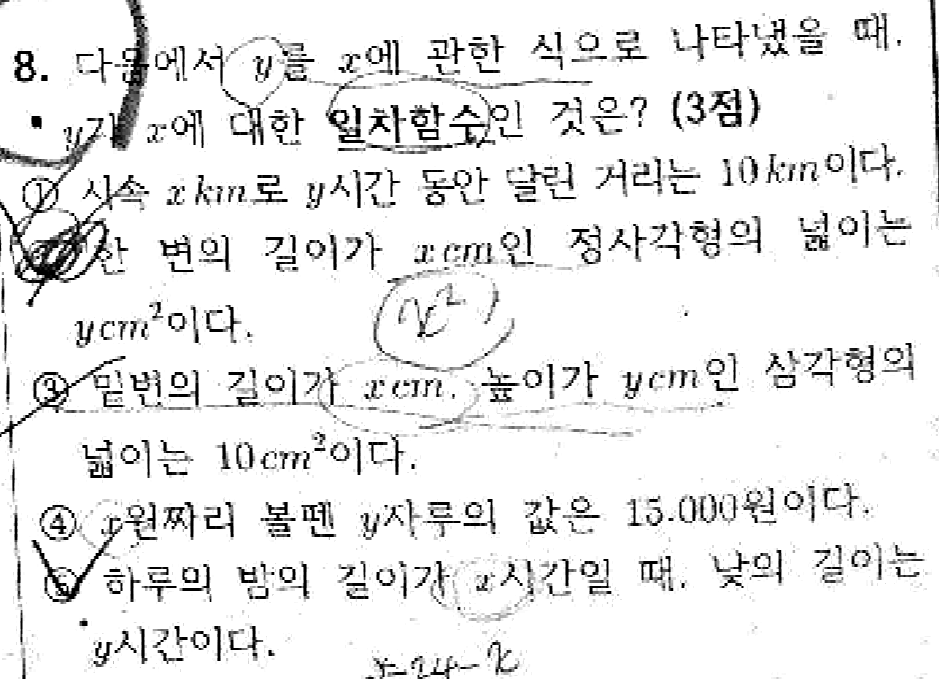 8. 다음에서 y를 x에 관한 식으로 나타냈을 때,
y가 x에 대한 일차함수인 것은? (3점)
① 시속 x km로 y시간 동안 달린 거리는 10km이다.
② 한 변의 길이가 xcm인 정사각형의 넓이는
ycm²이다.
x²
③ 밑변의 길이가 xcm, 높이가 ycm인 삼각형의
넓이는 10cm²이다.
④ x원짜리 볼펜 y자루의 값은 15,000원이다.
⑤ 하루의 밤의 길이가 x시간일 때, 낮의 길이는
y시간이다.
y=24-x